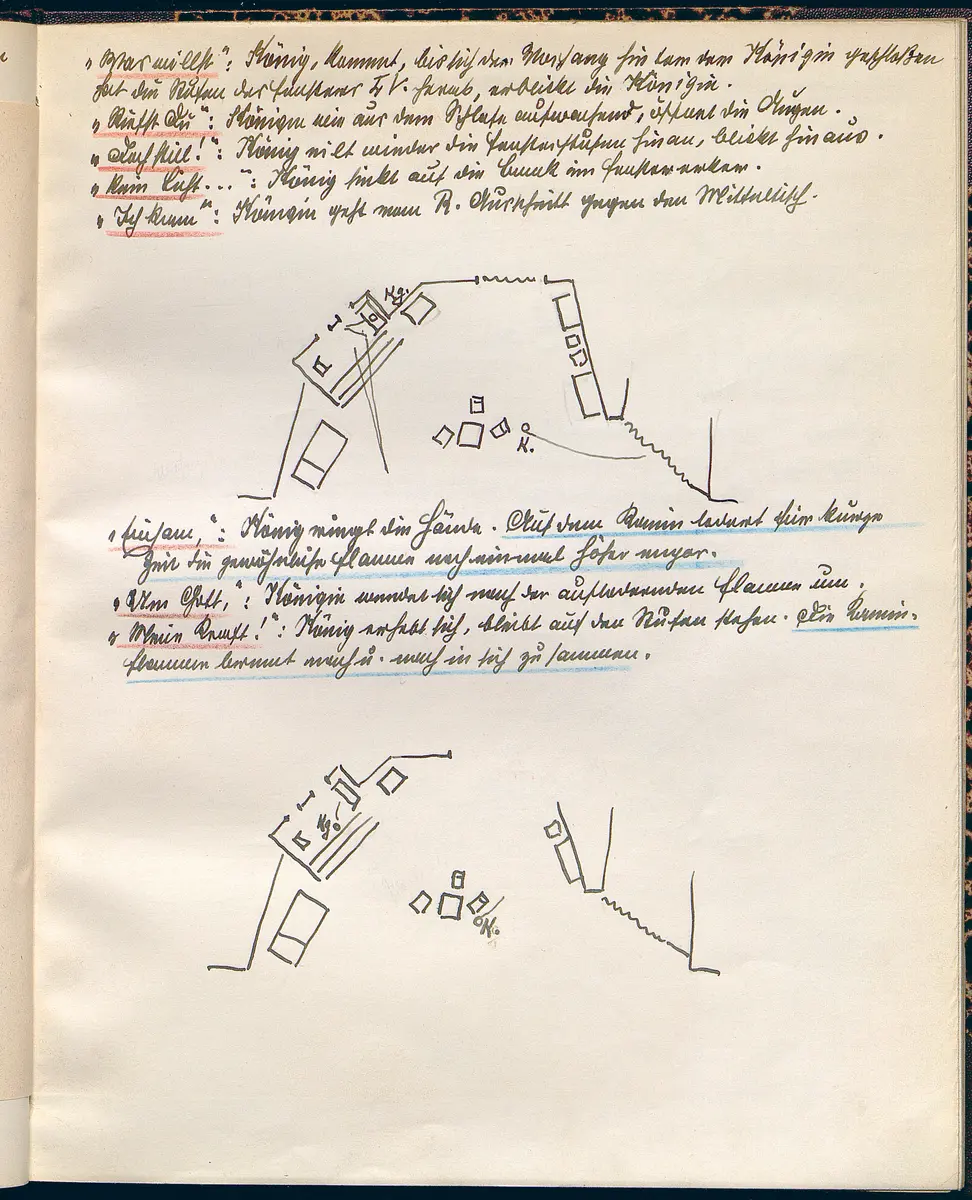 „Was willst“: König, kommt, bis sich der Vorhang hinter der Königin geschloßen
hat die Stufen des Fensters I V. herab, erblickt die Königin.
„Rufst Du“: Königin wie aus dem Schlafe aufwachend, öffnet die Augen.
„Doch still!“: König eilt wieder die Fensterstufen hinan, blickt hinaus.
„Kein Licht...“: König sinkt auf die Bank im Fenstererker.
„Ich kam“: Königin geht vom R. Ausschnitt gegen den Mitteltisch.
Kg.
K.
„Einsam,“: König ringt die Hände. Auf dem Kamin lodert für kurze
Zeit die gewöhnliche Flamme noch einmal höher empor.
„Um Gott,“: Königin wendet sich nach der auflodernden Flamme um.
„Meine Kraft!“: König erhebt sich, bleibt auf den Stufen stehen. Die Kamin-
flamme brennt nach u. nach in sich zusammen.
Kg.
K.